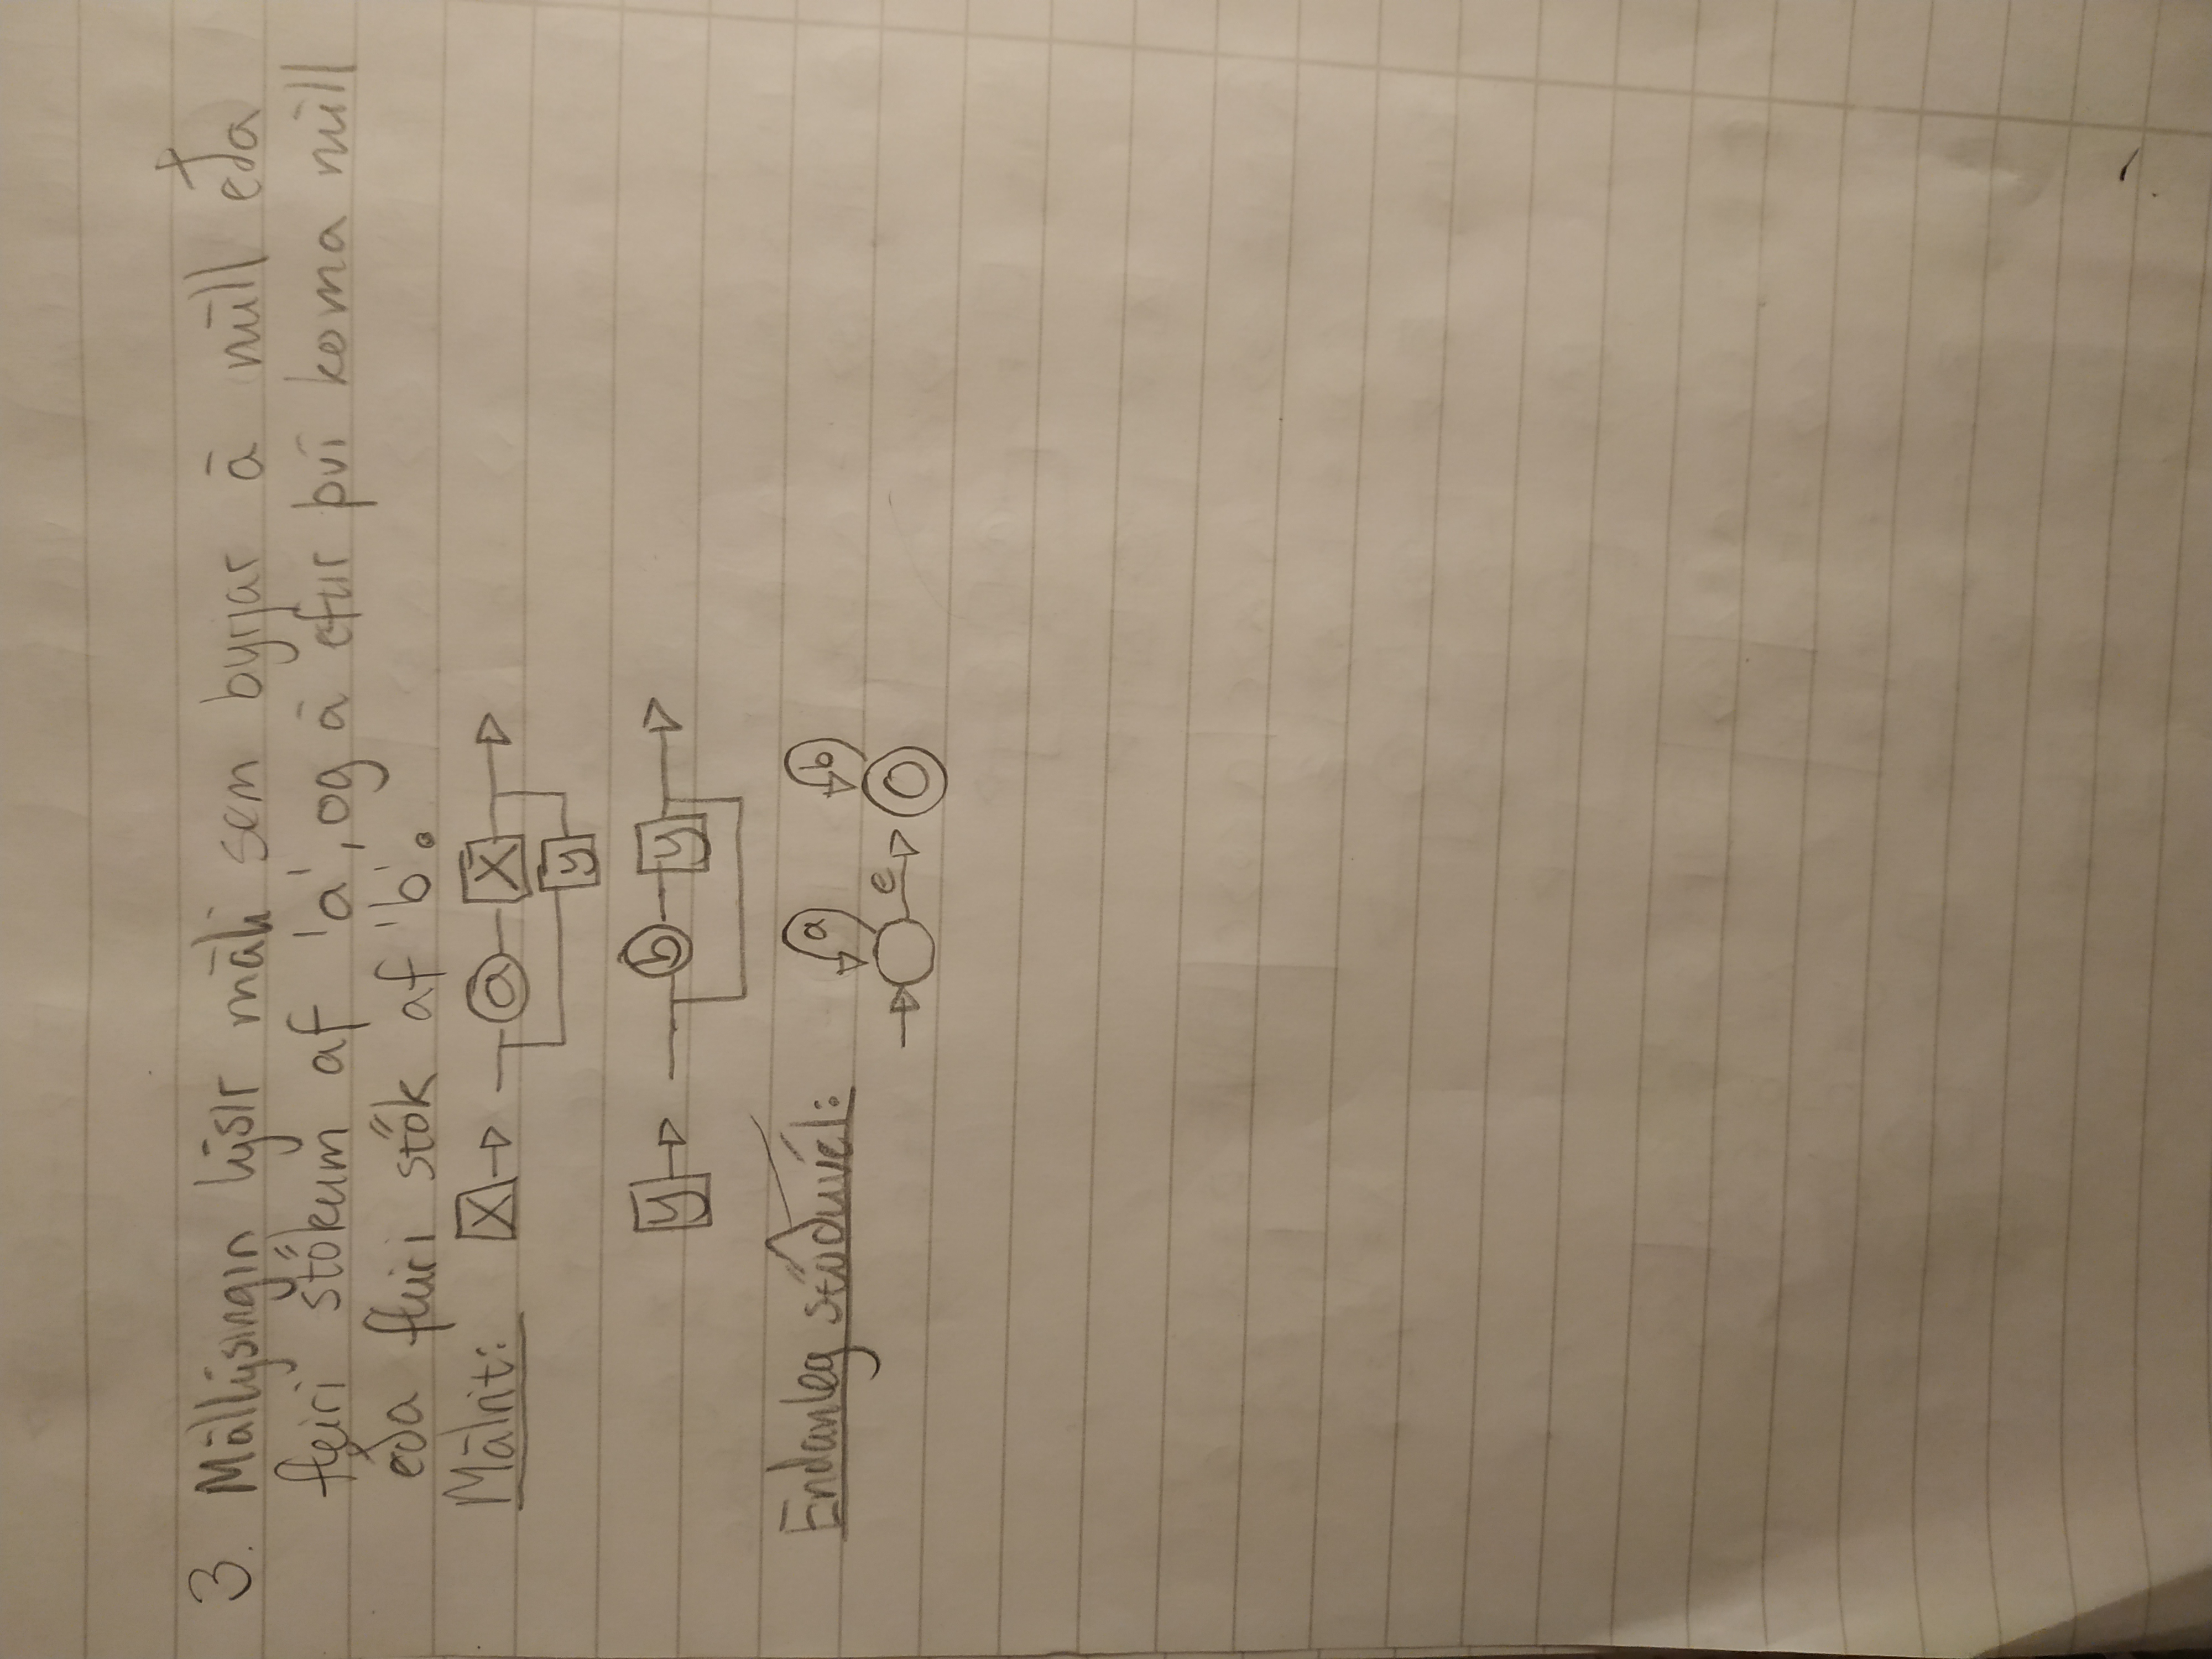 3. Mállýsingin lýsir máli sem byrjar á núll eða
fleiri stökum af 'a', og á eftir því koma núll
eða fleiri stök af 'b'.
Málrit: X a X
y
y b y
a b
Endanleg stöðuvél:
e